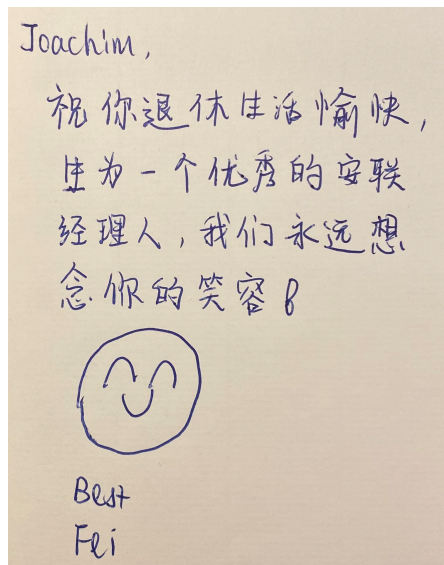 Joachim,
祝你退休生活愉快,
生为一个优秀的安联
经理人,我们永远想
念你的笑容。
Best
Fei